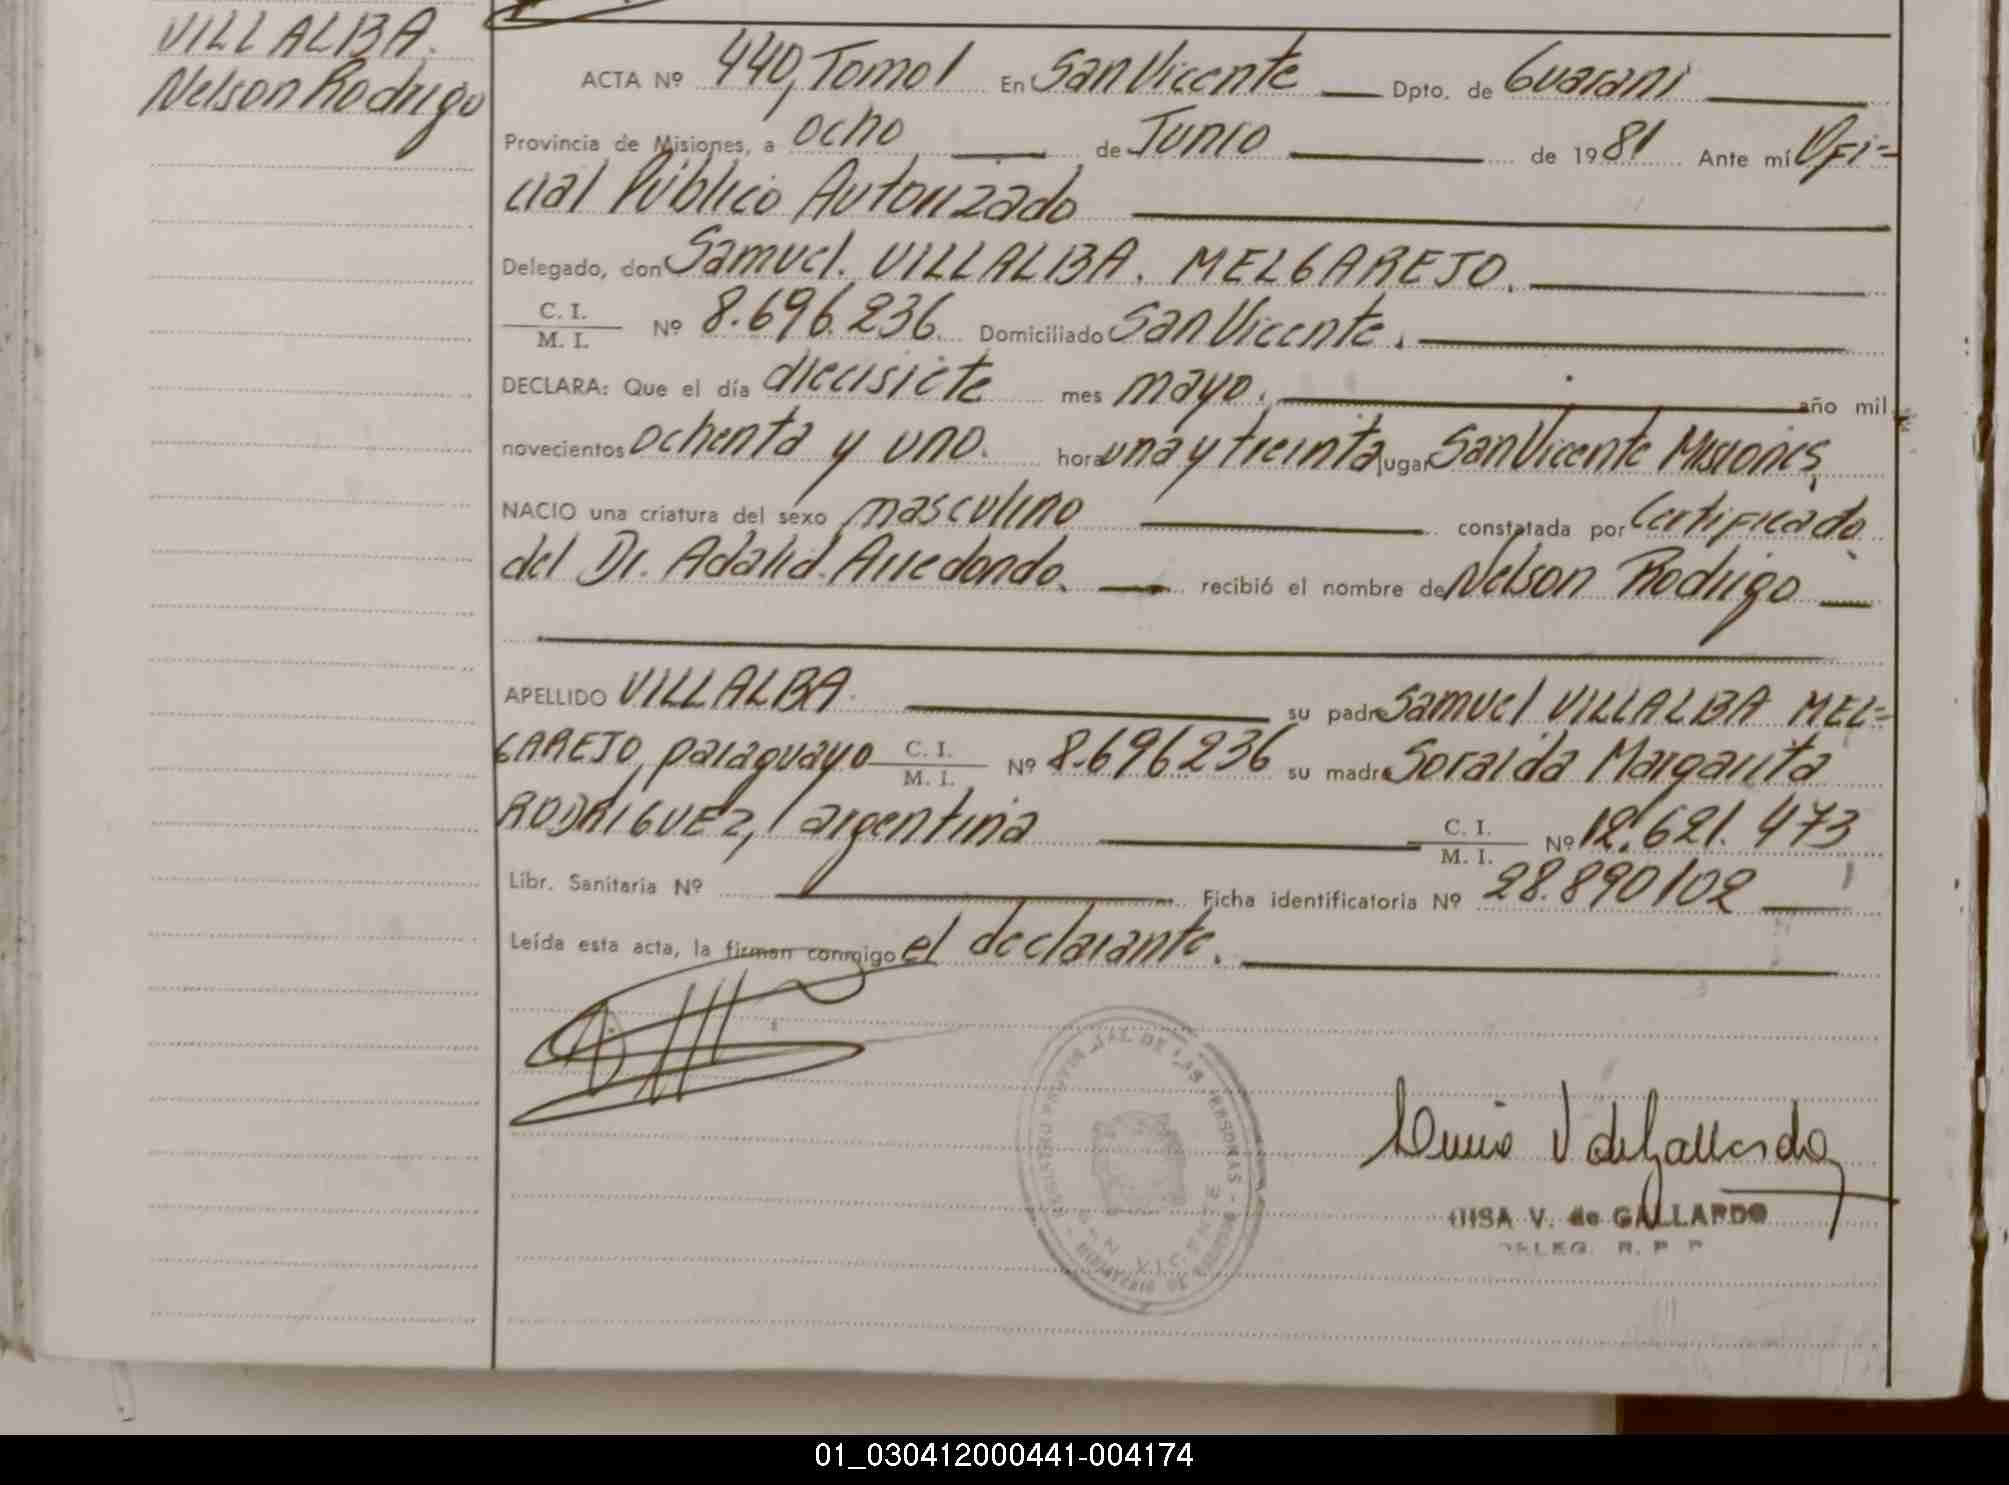 VILLALBA.
Nelson Rodrigo
ACTA Nº 440, Tomo I En San Vicente Dpto. de Guarani
Provincia de Misiones, a ocho de Junio de 1981 Ante mí Ofi=
cial Público Autorizado
Delegado, don Samuel. VILLALBA. MELGAREJO.
C. I.
M. I. Nº 8.696.236. Domiciliado San Vicente.
DECLARA: Que el día diecisiete mes mayo. año mil
novecientos ochenta y uno. hora una y treinta lugar San Vicente Misiones,
NACIO una criatura del sexo masculino constatada por Certificado
del Dr. Adalid. Arredondo. recibió el nombre de Nelson Rodrigo
APELLIDO VILLALBA. su padre Samuel VILLALBA MEL=
GAREJO, paraguayo C. I. M. I. Nº 8.696236 su madre Soraida Margarita
RODRIGUEZ, argentina C. I. M. I. Nº 12.621.473
Libr. Sanitaria Nº Ficha identificatoria Nº 28.890102
Leída esta acta, la firman conmigo el declarante.
V de Gallardo
V. de GALLARDO
R. P. P.
01_030412000441-004174